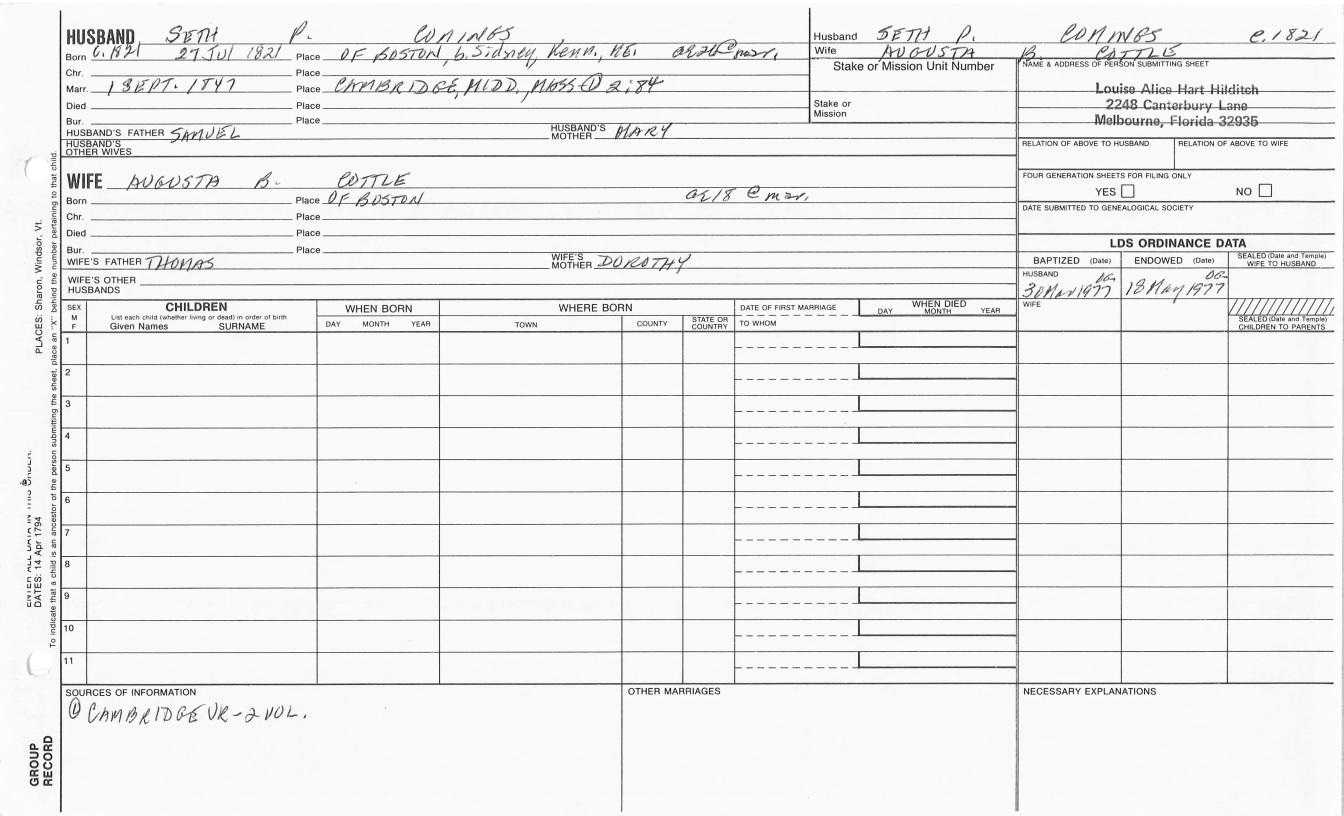 HUSBAND SETH P. COMINGS
Born C. 1821 27 Jul 1821 Place OF BOSTON, b. Sidney, Kenn, ME. ae 26 @ mar.
Chr. Place
Marr. 1 SEPT. 1847 Place CAMBRIDGE, MIDD., MASS ① 2:84
Died Place
Bur. Place
HUSBAND'S FATHER SAMUEL HUSBAND'S MOTHER MARY
HUSBAND'S OTHER WIVES
Husband SETH P. COMINGS c. 1821
Wife AUGUSTA B. COTTLE
Stake or Mission Unit Number
Stake or
Mission
NAME & ADDRESS OF PERSON SUBMITTING SHEET
Louise Alice Hart Hilditch
2248 Canterbury Lane
Melbourne, Florida 32935
RELATION OF ABOVE TO HUSBAND RELATION OF ABOVE TO WIFE
FOUR GENERATION SHEETS FOR FILING ONLY
YES NO
DATE SUBMITTED TO GENEALOGICAL SOCIETY
WIFE AUGUSTA B. COTTLE
Born Place OF BOSTON ae 18 @ mar.
Chr. Place
Died Place
Bur. Place
WIFE'S FATHER THOMAS WIFE'S MOTHER DOROTHY
WIFE'S OTHER
HUSBANDS
LDS ORDINANCE DATA
BAPTIZED (Date) ENDOWED (Date) SEALED (Date and Temple) WIFE TO HUSBAND
HUSBAND
3 Mar 1977 18 May 1977
WIFE
SEALED (Date and Temple)
CHILDREN TO PARENTS
SEX
M
F
CHILDREN
List each child (whether living or dead) in order of birth
Given Names SURNAME
WHEN BORN
DAY MONTH YEAR
WHERE BORN
TOWN COUNTY STATE OR COUNTRY
DATE OF FIRST MARRIAGE
TO WHOM
WHEN DIED
DAY MONTH YEAR
1
2
3
4
5
6
7
8
9
10
11
SOURCES OF INFORMATION
① CAMBRIDGE VR - 2 VOL.
OTHER MARRIAGES
NECESSARY EXPLANATIONS
PLACES: Sharon, Windsor, Vt.
ENTER ALL DATA IN THIS ORDER:
DATES: 14 Apr 1794
To indicate that a child is an ancestor of the person submitting the sheet, place an "X" behind the number pertaining to that child.
GROUP
RECORD